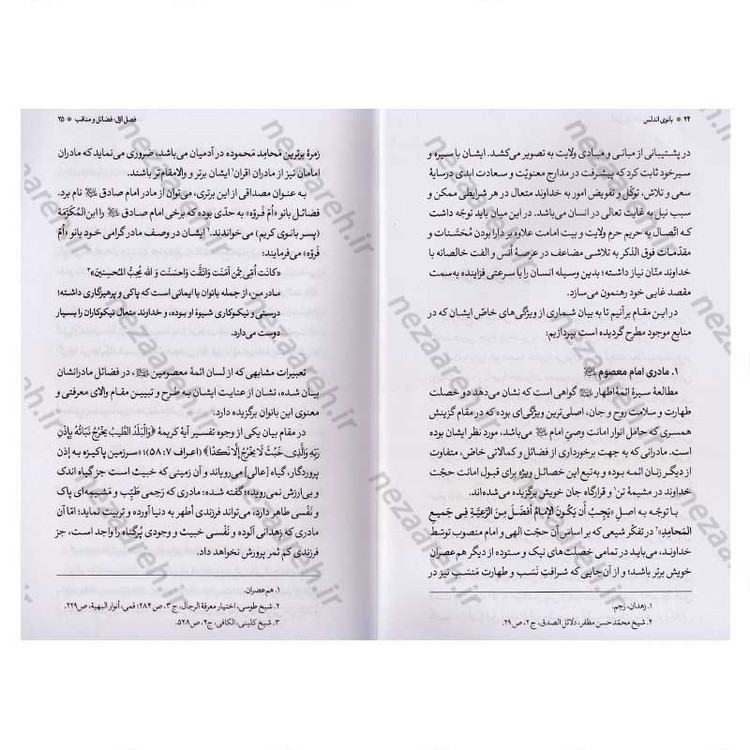 ۲۴ * بانوی اندلس
در پشتیبانی از مبانی و مبادی ولایت به تصویر می‌کشد. ایشان با سیره و
سیر خود ثابت کرد که پیشرفت در مدارج معنویّت و سعادت ابدی در سایهٔ
سعی و تلاش، توکّل و تفویض امور به خداوند متعال در هر شرایطی ممکن و
سبب نیل به غایت تعالی در انسان می‌باشد. در این میان باید توجّه داشت
که اتّصال به حریم حرم ولایت و بیت امامت علاوه بر دارا بودن مُحسَّنات و
مقدّمات فوق الذکر به تلاشی مضاعف در عرصهٔ اُنس و الفت خالصانه با
خداوند منّان نیاز داشته؛ بدین وسیله انسان را با سرعتی فزاینده به سمت
مقصد غایی خود رهنمون می‌سازد.
در این مقام برآنیم تا به بیان شماری از ویژگی‌های خاصّ ایشان که در
منابع موجود مطرح گردیده است بپردازیم:
۱. مادری امام معصوم ﷺ
مطالعهٔ سیرهٔ ائمّهٔ اطهار گواهی است که نشان می‌دهد دو خصلت
طهارت و سلامت روح و جان، اصلی‌ترین ویژگی‌ای بوده که در مقام گزینش
همسری که حامل انوار امامت وصیّ امام می‌باشد، مورد نظر ایشان بوده
است. مادرانی که به جهت برخورداری از فضائل و کمالاتی خاصّ، متفاوت
از دیگر زنان ائمه بوده و به‌تبع این خصائل ویژه برای قبول امانت حجّت
خداوند در مشیمهٔ تن۱ و قرارگاه جان خویش برگزیده می‌شده‌اند.
با توجّه به اصلِ «یَجِبُ أن یَکُونَ الإمامُ أفضَلَ مِنَ الرَّعِیَّةِ فِی جَمیعِ
المَحامِدِ»۲ در تفکّر شیعی که بر اساس آن حجّت الهی و امام منصوب توسّط
خداوند، می‌باید در تمامی خصلت‌های نیک و ستوده از دیگر هم عصران
خویش برتر باشد؛ و از آن جایی که شرافتِ نَسَب و طهارت مَنسَب نیز در
۱. زهدان، رَحِم.
۲. شیخ محمّدحسن مظفر، دلائل الصدق، ج ۲، ص ۲۹.
فصل اوّل: فضائل و مناقب * ۲۵
زمرهٔ برترین مَحامِد مَحموده در آدمیان می‌باشد، ضروری می‌نماید که مادران
امامان نیز از مادران اقران۱ ایشان برتر و والامقام‌تر باشند.
به عنوان مصداقی از این برتری، می‌توان از مادر امام صادق نام برد.
فضائل بانو «اُمّ فَروَه» به حدّی بوده که برخی امام صادق را ابن المُکَرَّمَة
(پسر بانوی کریم) می‌خواندند.۲ ایشان در وصف مادر گرامی خود بانو «اُم
فَروَه» می‌فرمایند:
«کانَت اُمّی مِمَّن آمَنَت وَاتَّقَت وَاَحسَنَت وَ الله یُحِبُّ المُحسِنینَ»۳
مادر من، از جمله بانوان با ایمانی است که پاکی و پرهیزگاری داشته؛
درستی و نیکوکاری شیوهٔ او بوده، و خداوند متعال نیکوکاران را بسیار
دوست می‌دارد.
تعبیرات مشابهی که از لسان ائمّهٔ معصومین در فضائل مادرانشان
بیان شده، نشان از عنایت ایشان به طرح و تبیین مقام والای معرفتی و
معنوی این بانوان برگزیده دارد.
در مقام بیان یکی از وجوه تفسیر آیهٔ کریمهٔ ﴿وَالْبَلَدُ الطَّیِّبُ یَخْرُجُ نَبَاتُهُ بِإِذْنِ
رَبِّهِ وَالَّذِی خَبُثَ لَا یَخْرُجُ إِلَّا نَکِدًا﴾ (اعراف ۵۸:۷)؛ «سرزمین پاکیزه به إذن
پروردگار، گیاه [عالی] می‌رویاند و آن زمینی که خبیث است جز گیاه اندک
و بی‌ارزش نمی‌روید»؛ گفته شده: مادری که رَحِمی طَیِّب و مَشیمه‌ای پاک
و نَفْسی طاهر دارد، می‌تواند فرزندی أطهر به دنیا آورده و تربیت نماید؛ امّا آن
مادری که زهدانی آلوده و نَفْسی خبیث و وجودی پُرگناه را واجد است، جز
فرزندی کم ثمر پرورش نخواهد داد.
۱. هم‌عصران.
۲. شیخ طوسی، اختیار معرفة الرجال، ج ۳، ص ۲۸۴؛ قمی، أنوار البهیة، ص ۲۲۹.
۳. شیخ کلینی، الکافی، ج۲، ص ۵۲۸.
nezaareh.ir